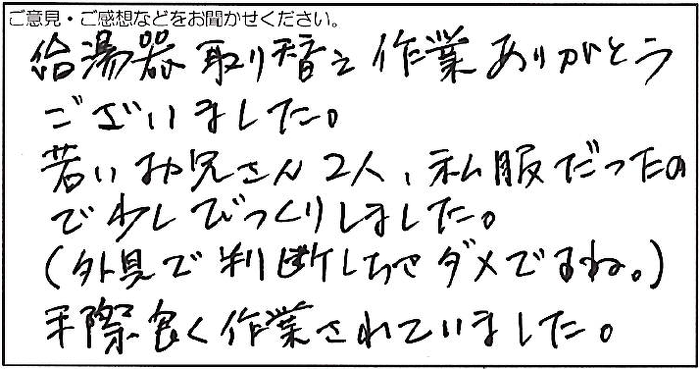 ご意見・ご感想などをお聞かせください。
給湯器取り替え作業ありがとう
ございました。
若いお兄さん2人、私服だったの
で少しびっくりしました。
(外見で判断しちゃダメですね。)
手際良く作業されていました。